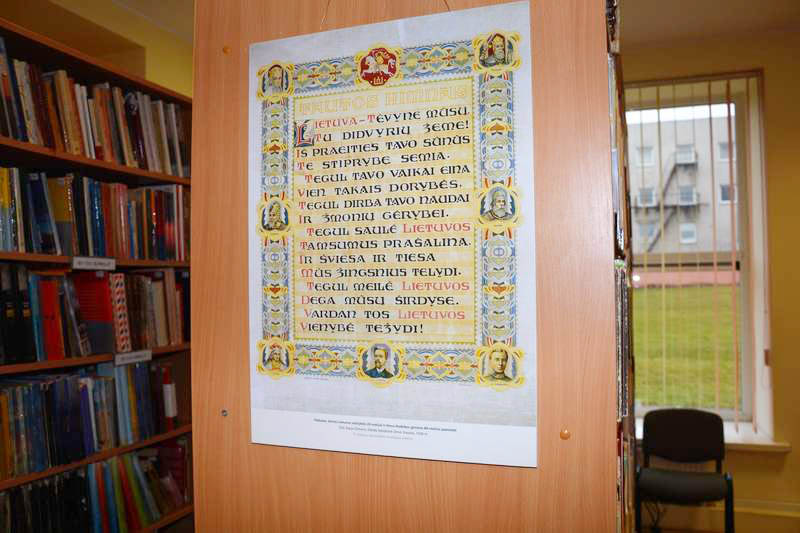 TAUTOS HIMNAS
LIETUVA – TĖVYNE MŪSŲ,
TU DIDVYRIŲ ŽEME!
IŠ PRAEITIES TAVO SŪNŪS
TE STIPRYBĘ SEMIA.
TEGUL TAVO VAIKAI EINA
VIEN TAKAIS DORYBĖS,
TEGUL DIRBA TAVO NAUDAI
IR ŽMONIŲ GĖRYBEI.
TEGUL SAULĖ LIETUVOS
TAMSUMUS PRAŠALINA,
IR ŠVIESA IR TIESA
MŪS ŽINGSNIUS TELYDI.
TEGUL MEILĖ LIETUVOS
DEGA MŪSŲ ŠIRDYSE,
VARDAN TOS LIETUVOS
VIENYBĖ TEŽYDI!